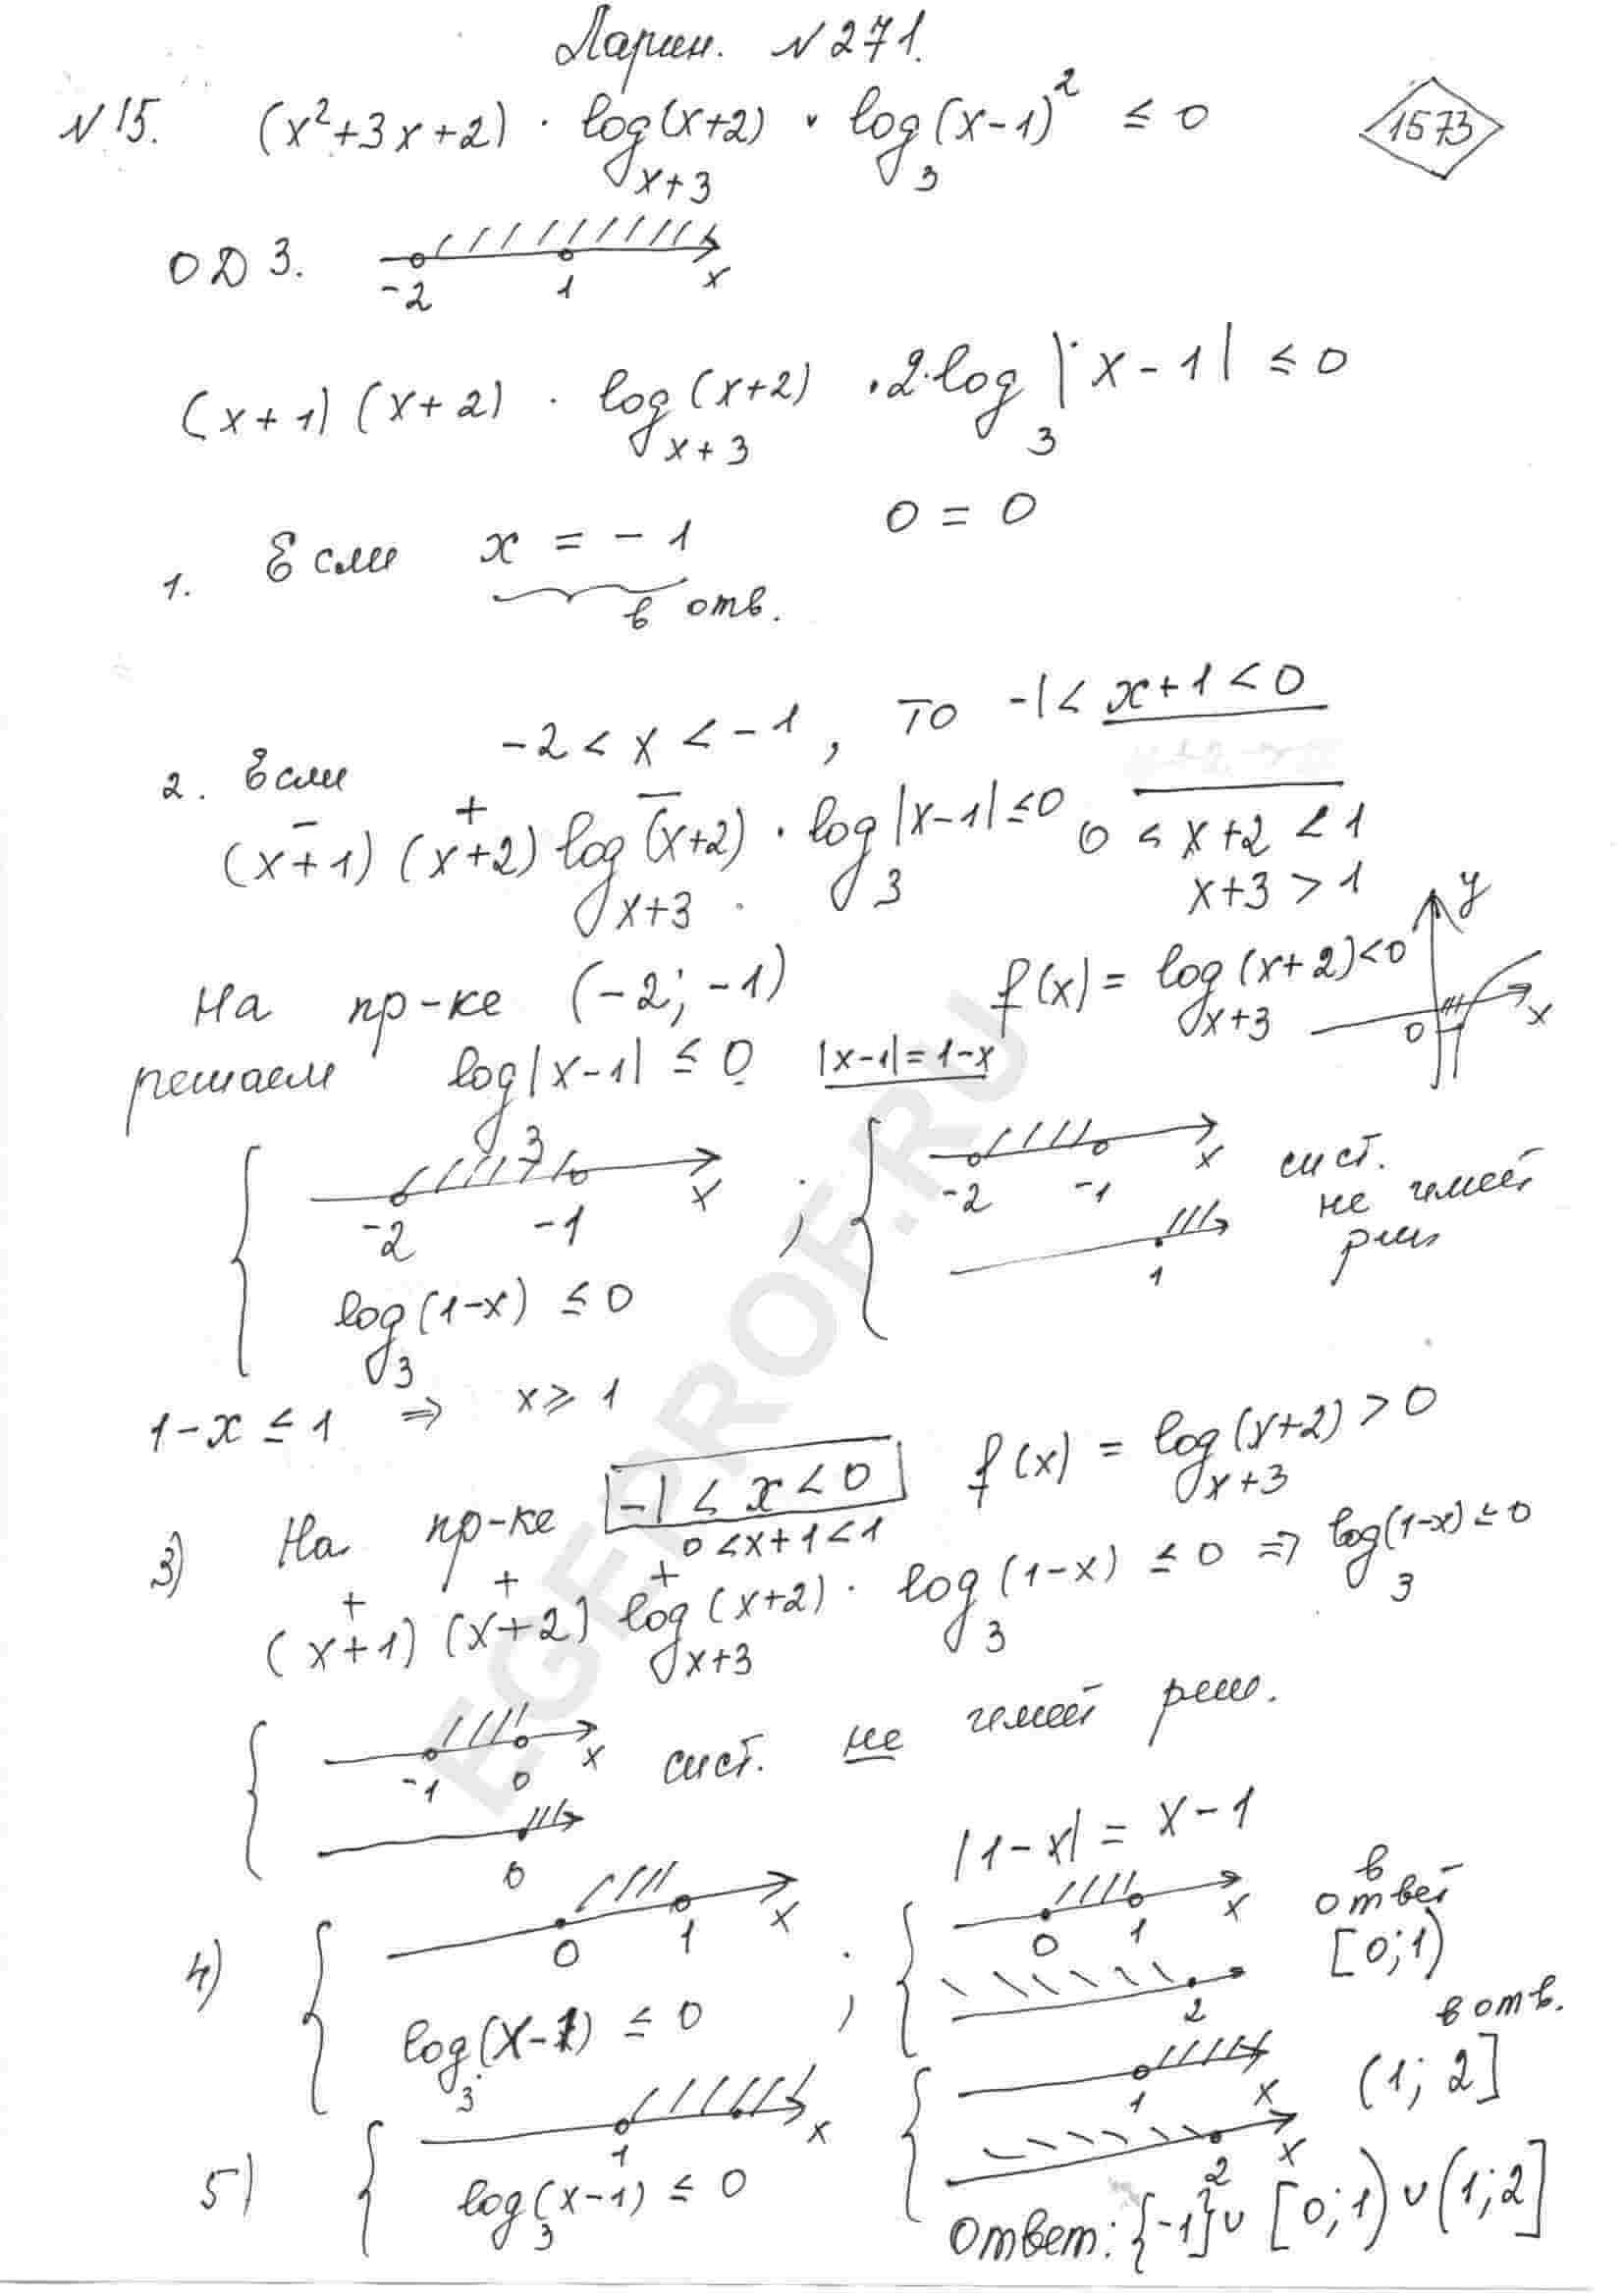 Ларин. N 271.
N 15. (x²+3x+2) · log_{x+3}(x+2) · log_3(x-1)² ≤ 0
1573
ОДЗ. -2 1 x
(x+1)(x+2) · log_{x+3}(x+2) · 2·log_3|x-1| ≤ 0
1. Если x = -1 0 = 0
в отв.
2. Если -2 < x < -1, то -1 < x+1 < 0
(x+1)(x+2) log_{x+3}(x+2) · log_3|x-1| ≤ 0 0 < x+2 < 1
- + -
x+3 > 1
На пр-ке (-2; -1) f(x) = log_{x+3}(x+2) < 0 y 0 1 x
решаем log_3|x-1| ≤ 0 |x-1| = 1-x
{ -2 -1 x ; { -2 -1 x сист.
не имеет
log_3(1-x) ≤ 0 1 реш
1-x ≤ 1 ⇒ x ⩾ 1
3) На пр-ке -1 < x < 0 f(x) = log_{x+3}(x+2) > 0
0 < x+1 < 1
+ + +
(x+1)(x+2) log_{x+3}(x+2) · log_3(1-x) ≤ 0 ⇒ log_3(1-x) ≤ 0
{ -1 0 x сист. не имеет реш.
0
|1-x| = x-1
4) { 0 1 x ; { 0 1 x в ответ
[0;1)
log_3(x-1) ≤ 0 2
5) { 1 x { 1 x в отв. (1; 2]
log_3(x-1) ≤ 0 2 x
Ответ: {-1} ∪ [0;1) ∪ (1;2]
EGEPROF.RU